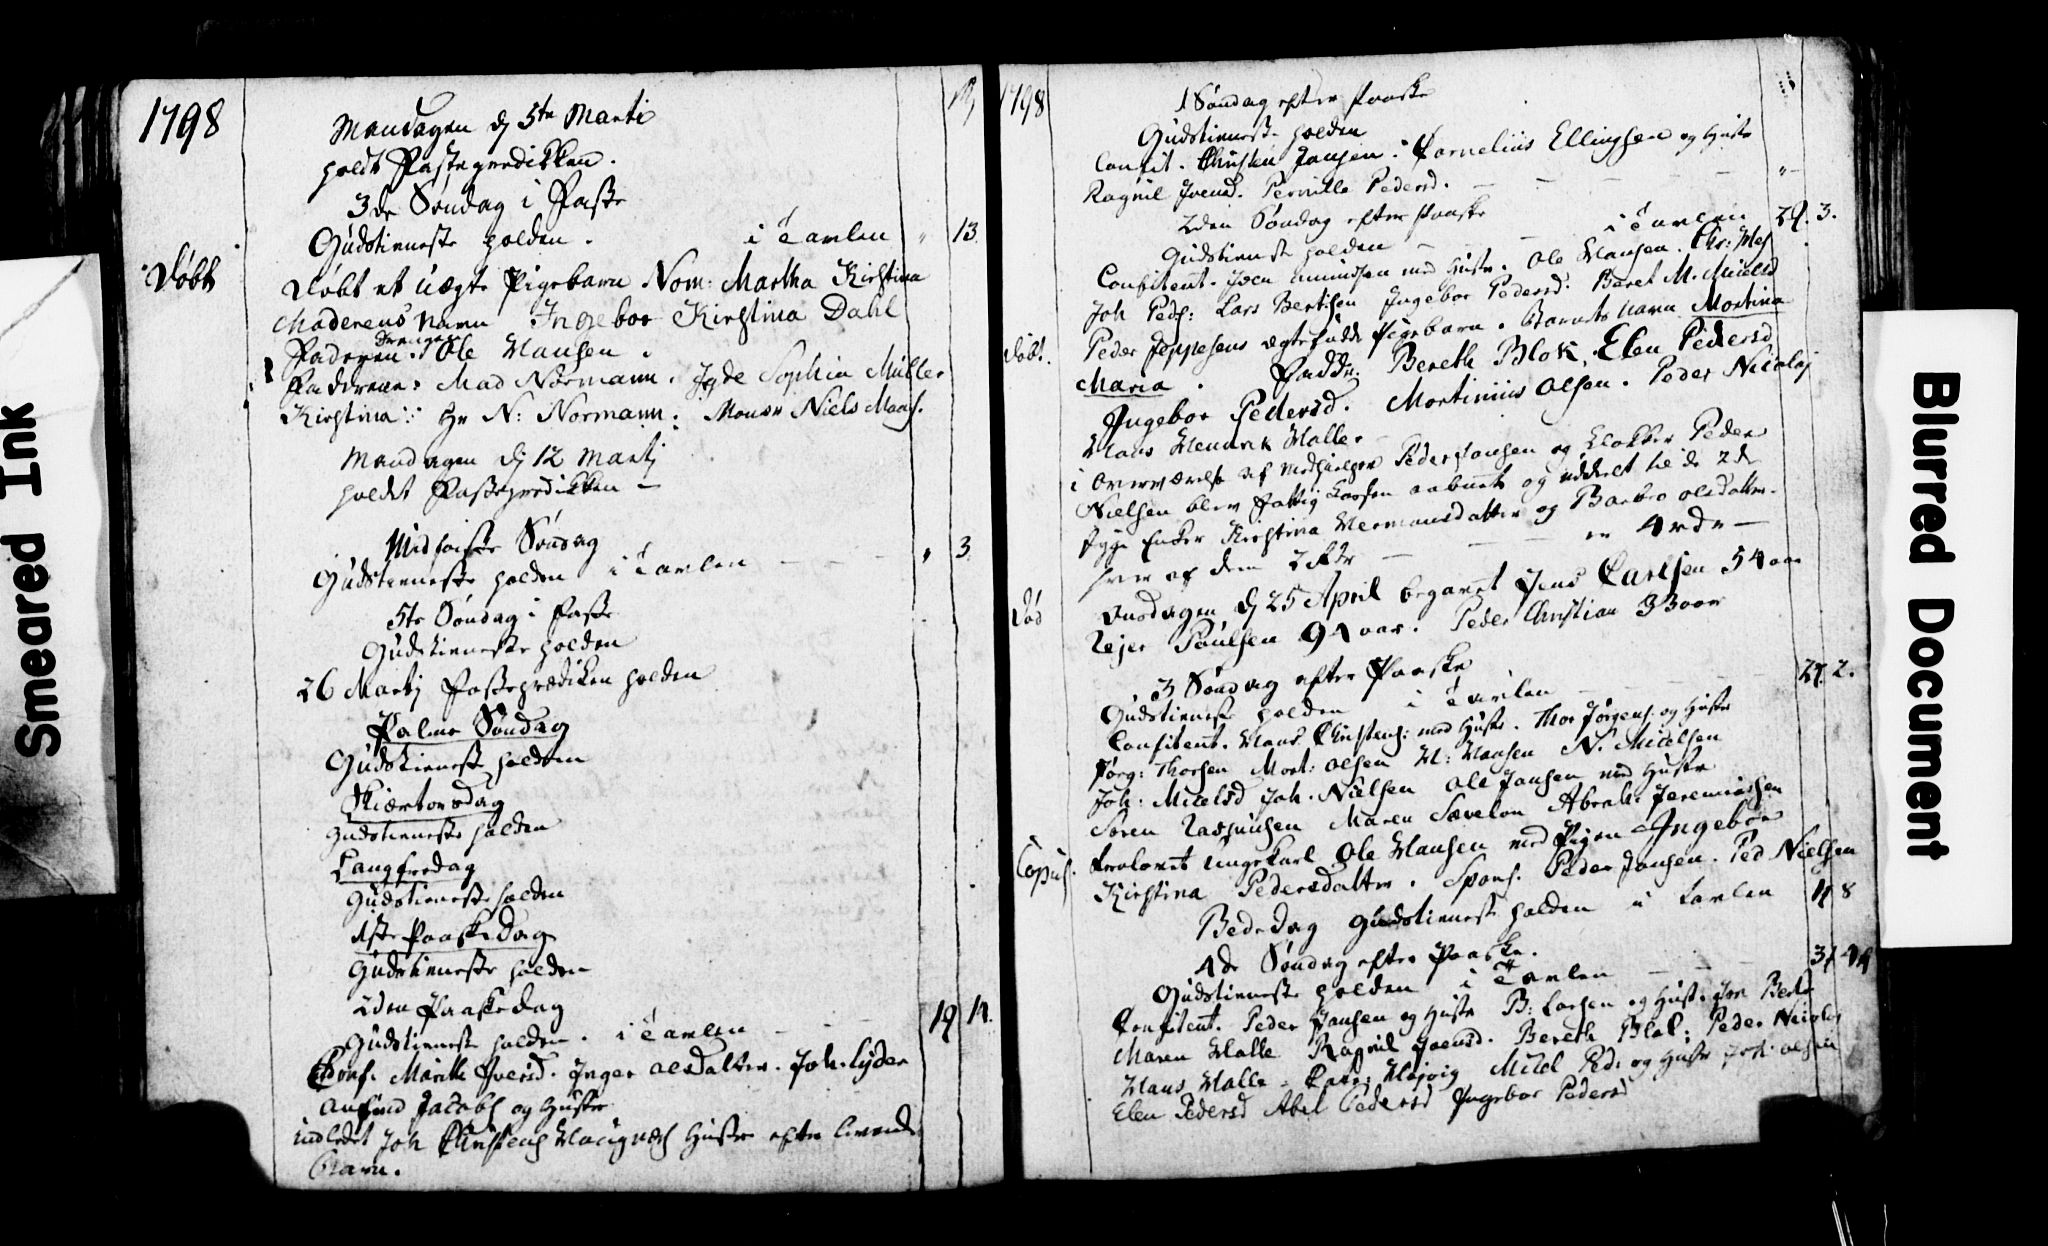 Smeared Ink
1798
Mandagen d 5te Marti
holdt Fasteprædikken.
3de Søndag i Faste
Gudstieneste holden. i Tavlen " 13
Døbt
Døbt et uægte Pigebarn Nom: Martha Kirstina
Moderens Navn Ingebor Kirstina Dahl
Faderen: Drengen Ole Hansen.
Fadderne: Mad Normann. Sophia Müller
Kirstina: Hr N: Normann. Monsr Niels
Mandagen d 12 Martj
holdet Fasteprædikken
Midfaste Søndag
Gudstieneste holden i Tavlen " 3
5te Søndag i Faste
Gudstieneste holden
26 Martj Fasteprædiken holden
Palme Søndag
Gudstieneste holden
Skiærtorsdag
Gudstieneste holden
Langfredag
Gudstieneste holden
1ste Paaske Dag
Gudstieneste holden
2den Paaskedag
Gudstieneste holden. i Tavlen 19 14.
Conf. Marith Iversd. Inger Olsdatter. Joh. Lyder
Amund Jacobs og Hustr
indledet Joh Christens Hustr efter levende
Barn.
1798
1 Søndag efter Paaske
Gudstieneste holden
Confit. Christen Jansen. Cornelius Ellingsen og Hustr
Ragnil Joensd. Pernille Pedersd.
2den Søndag efter Paaske
Gudstieneste holden i Tavlen 29. 3.
Confitent. Joen Amundsen med Hustr. Ole Hansen.
Joh Peds: Lars Bertsen Ingebor Pedersd. Beret M. Micelsd
Døbt.
Peder Jeppesens ægtefødde Pigebarn. Barnets Navn Mortina
Maria. Faddr: Bereth Blok. Elen Pedersd.
Ingebor Pedersd. Mortinius Olsen. Peder Nicolaj
Hans Hendrik Halle
i Overværelse af Medhielper Peder Jansen og Klokker Peder
Nielsen blev Fattig Cassen aabnet og uddeelt til de 2de
syge Enker Kirstina Hermansdatter og Barbro Olsdatter.
hver af dem 2 Rdr er 4 rdr
Død
Onsdagen d 25 April begravet Jens Carlsen 54 aar
Rejer Paulsen 94 aar. Peder Christian 33 aar
3 Søndag efter Paaske
Gudstieneste holden i Tavlen 29. 2.
Confitent. Hans Christens: med Hustr. Thor Jørgens og Hustr
Jørg: Thorsen Mort: Olsen H: Hansen N. Micelsen
Joh: Micelsd Joh. Nielsen Ole Jansen med Hustr
Søren Rasmusen Maren Sævelon Abrah. Jeremiassen
Copul.
Trolovet Ungekarl Ole Hansen med Pigen Ingebor
Kirstina Pedersdatter. Spons. Peder Jansen. Ped Nielsen
Bededag Gudstieneste holden i Tavlen 11 8
4de Søndag efter Paaske.
Gudstieneste holden i Tavlen
Confitent. Peder Jansen og Hustr B: Larsen og Hust.
Maren Halle Ragnil Joensd. Bereth Blok: Peder Nicolaj
Hans Halle Micel Ped: og Hustr Joh: Olsen
Elen Pedersd Abel Pedersd Ingebor Pedersd
Blurred Document